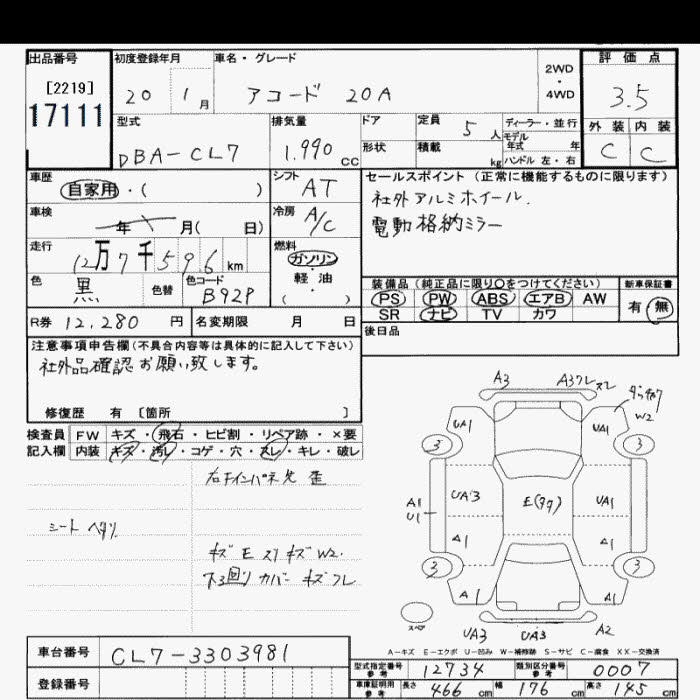 出品番号
[2219]
17111
初度登録年月
20 1月
車名・グレード
アコード 20A
2WD
・
4WD
評価点
3.5
外装 内装
C C
型式
DBA-CL7
排気量
1.990 cc
ドア
形状
定員
5人
積載
kg
ディーラー・並行
モデル
年式 年
ハンドル 左・右
車歴
自家用・( )
シフト
AT
セールスポイント (正常に機能するものに限ります)
社外アルミホイール.
電動格納ミラー
車検
年 月( 日)
冷房
A/C
走行
12万7千596km
燃料
ガソリン
・
軽油
( )
色
黒
色替
色コード
B92P
装備品 (純正品に限り○をつけてください)
PS PW ABS エアB AW
SR ナビ TV カワ
新車保証書
有・無
R券 12,280円
名変期限 月 日
後日品
注意事項申告欄(不具合内容等は具体的に記入して下さい)
社外品確認お願い致します。
修復歴 有 〔箇所 〕
検査員
記入欄
FW キズ・飛石・ヒビ割・リペア跡・×要
内装 キズ・汚レ・コゲ・穴・スレ・キレ・破レ
右fインパネ先 歪
シート ヘタリ
キズ E スリキズ W2.
下3回り カバー キズフレ
A3
W2
UA1
UA1
3
3
A1
U1
UA3
E(タタ)
UA1
A1
A1
3
3
A1
A1
スペア
UA3
UA3
A2
A-キズ E-エクボ U-凹み W-補修跡 S-サビ C-腐食 XX-交換済
車台番号
CL7-3303981
登録番号
型式指定番号
参考
12734
類別区分番号
参考
0007
車庫証明用
参考
長さ 466 cm 幅 176 cm 高さ 145 cm